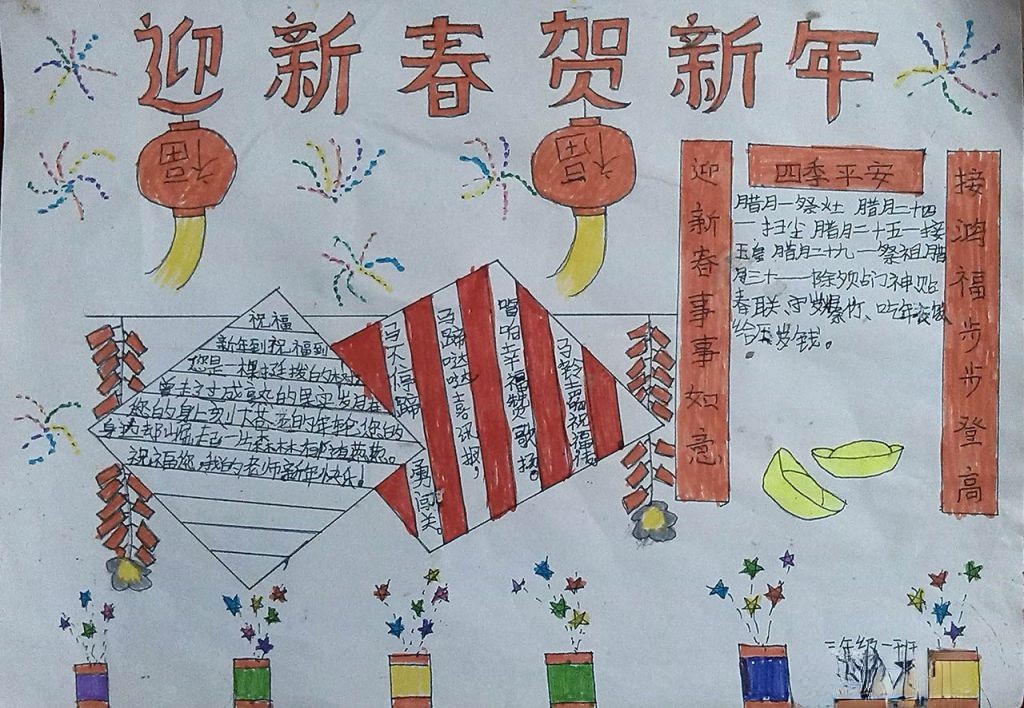 迎新春贺新年
福
福
迎新春事事如意
四季平安
接鸿福步步登高
腊月一祭灶 腊月二十四
一扫尘 腊月二十五一接
玉皇 腊月二十九一祭祖 腊
月三十一除夕贴门神贴
春联 守岁爆竹、吃年夜饭
给压岁钱。
祝福
新年到祝福到
您是一棵挺拔的大树
曾去过成熟的果实 岁月在
您的身上刻
您的
身边却崛起一片森林
祝福您,我的老师新年快乐!
马不停蹄
勇闯关。
马蹄哒哒喜讯报,
唱响幸福赞歌扬。
马铃声声祝福
三年级一班